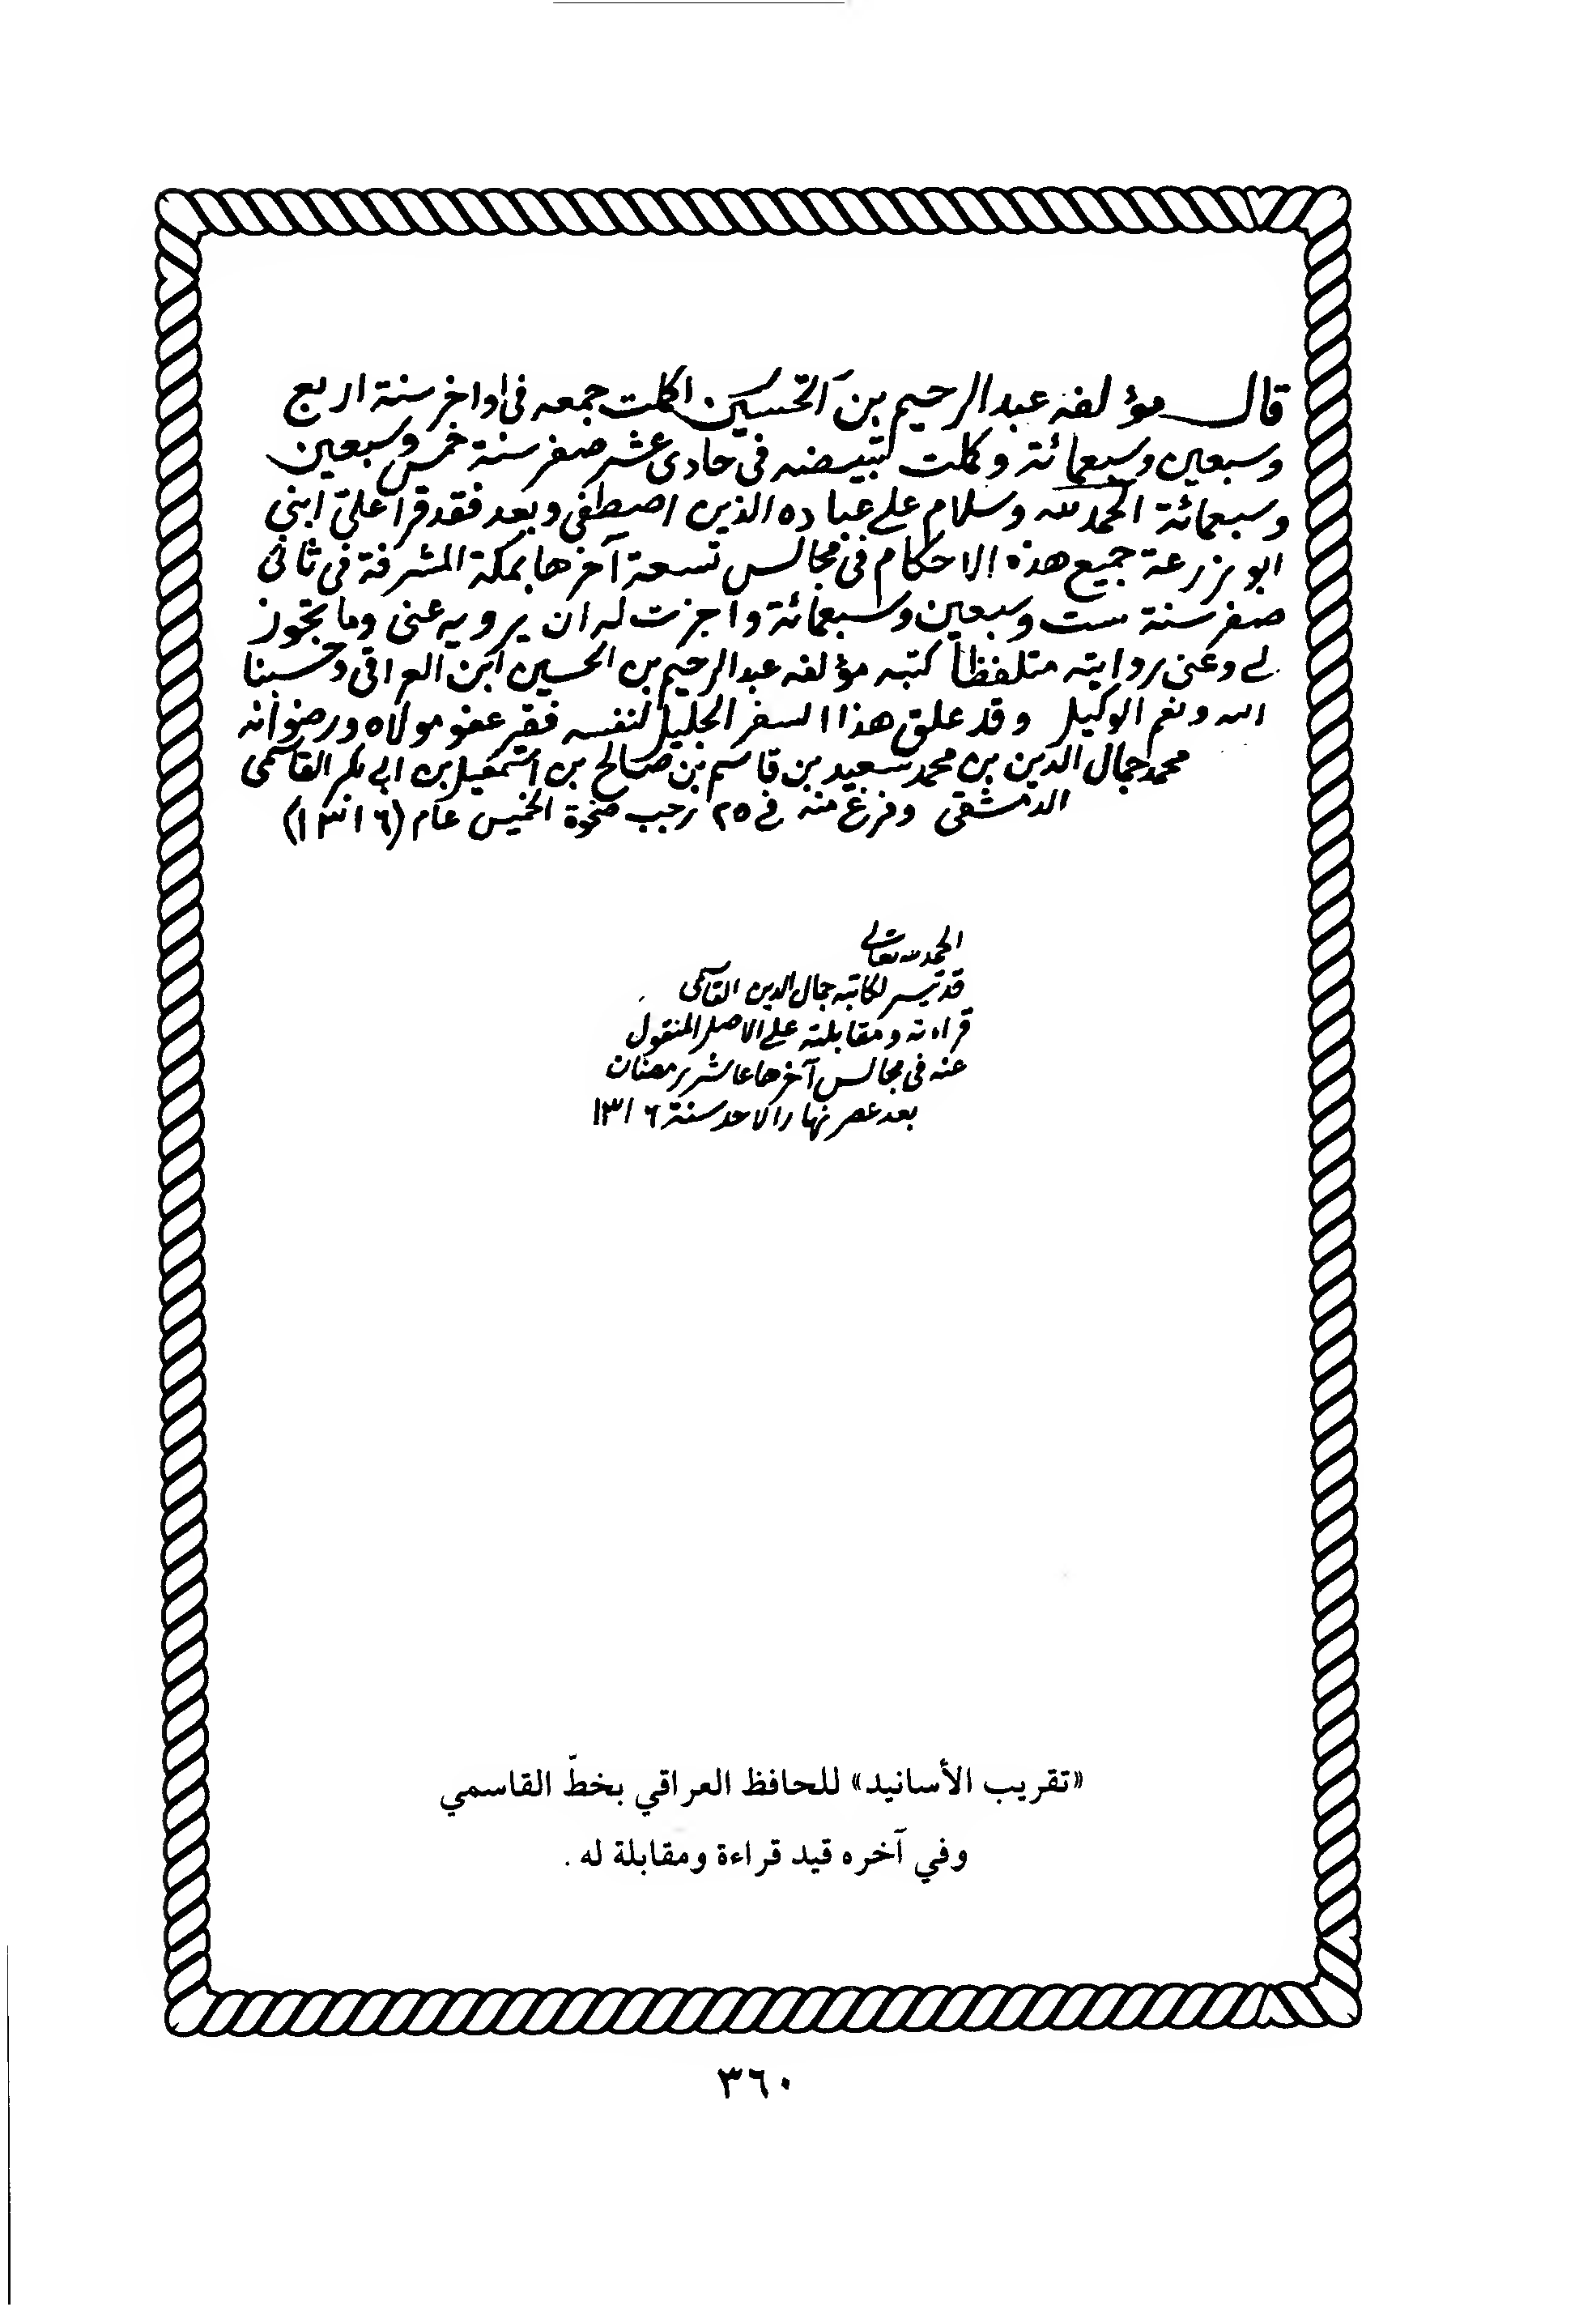 قال مؤلفه عبد الرحيم بن الحسين اكملت جمعه في اواخر سنة اربع
وسبعين وسبعمائة وكملت تبييضه في حادى عشر صفر سنة خمس وسبعين
وسبعمائة الحمد لله وسلام على عباده الذين اصطفى وبعد فقد قرأ علىّ ابنى
ابو زرعة جميع هذه الاحكام في مجالس تسعة آخرها بمكة المشرفة في ثانى
صفر سنة ست وسبعين وسبعمائة واجزت له ان يرويه عنى وما تجوز
لى وعنى روايته متلفظا كتبه مؤلفه عبد الرحيم بن الحسين ابن العراقى وحسبنا
الله ونعم الوكيل وقد علق هذا السفر الجليل لنفسه فقير عفو مولاه ورضوانه
محمد جمال الدين بن محمد سعيد بن قاسم بن صالح بن اسمعيل بن ابي بكر القاسمى
الدمشقى وفرغ منه في ٢٥ رجب ضحوة الخميس عام (١٣١٦)
الحمد لله تعالى
قد تيسر لكاتبه جمال الدين القاسمى
قراءته ومقابلته على الاصل المنقول
عنه في مجالس آخرها عاشر رمضان
بعد عصر نهار الاحد سنة ١٣١٦
«تقريب الأسانيد» للحافظ العراقي بخطّ القاسمي
وفي آخره قيد قراءة ومقابلة له .
٣٦٠